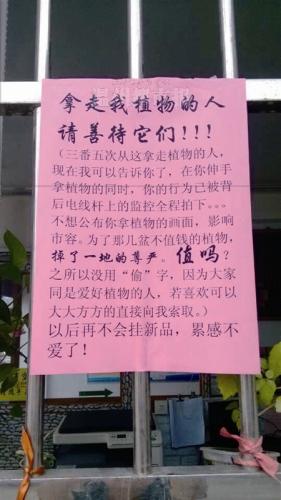 拿走我植物的人
请善待它们!!!
(三番五次从这拿走植物的人,
现在我可以告诉你了,在你伸手
拿植物的同时,你的行为已被背
后电线杆上的监控全程拍下。。。
不想公布你拿植物的画面,影响
市容。为了那几盆不值钱的植物,
掉了一地的尊严。值吗?
之所以没用“偷”字,因为大家
同是爱好植物的人,若喜欢可以
大大方方的直接向我索取。)
以后再不会挂新品,累感不
爱了!